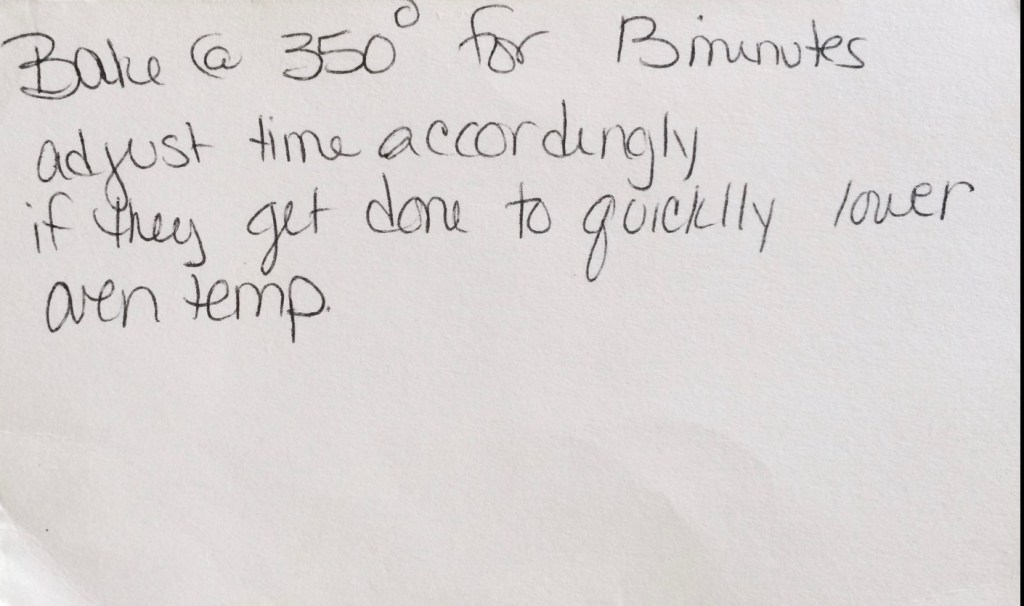 Bake @ 350° for 13 minutes
adjust time accordingly
if they get done to quicklly lower
oven temp.